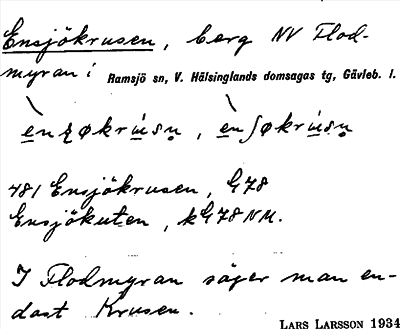 Ensjökrusen, berg NV Flod-
myran i Ramsjö sn, V. Hälsinglands domsagas tg, Gävleb. l.
481 Ensjökrusen, G78
Ensjökuten, kG78NM.
I Flodmyran säger man en-
dast Krusen.
LARS LARSSON 1934